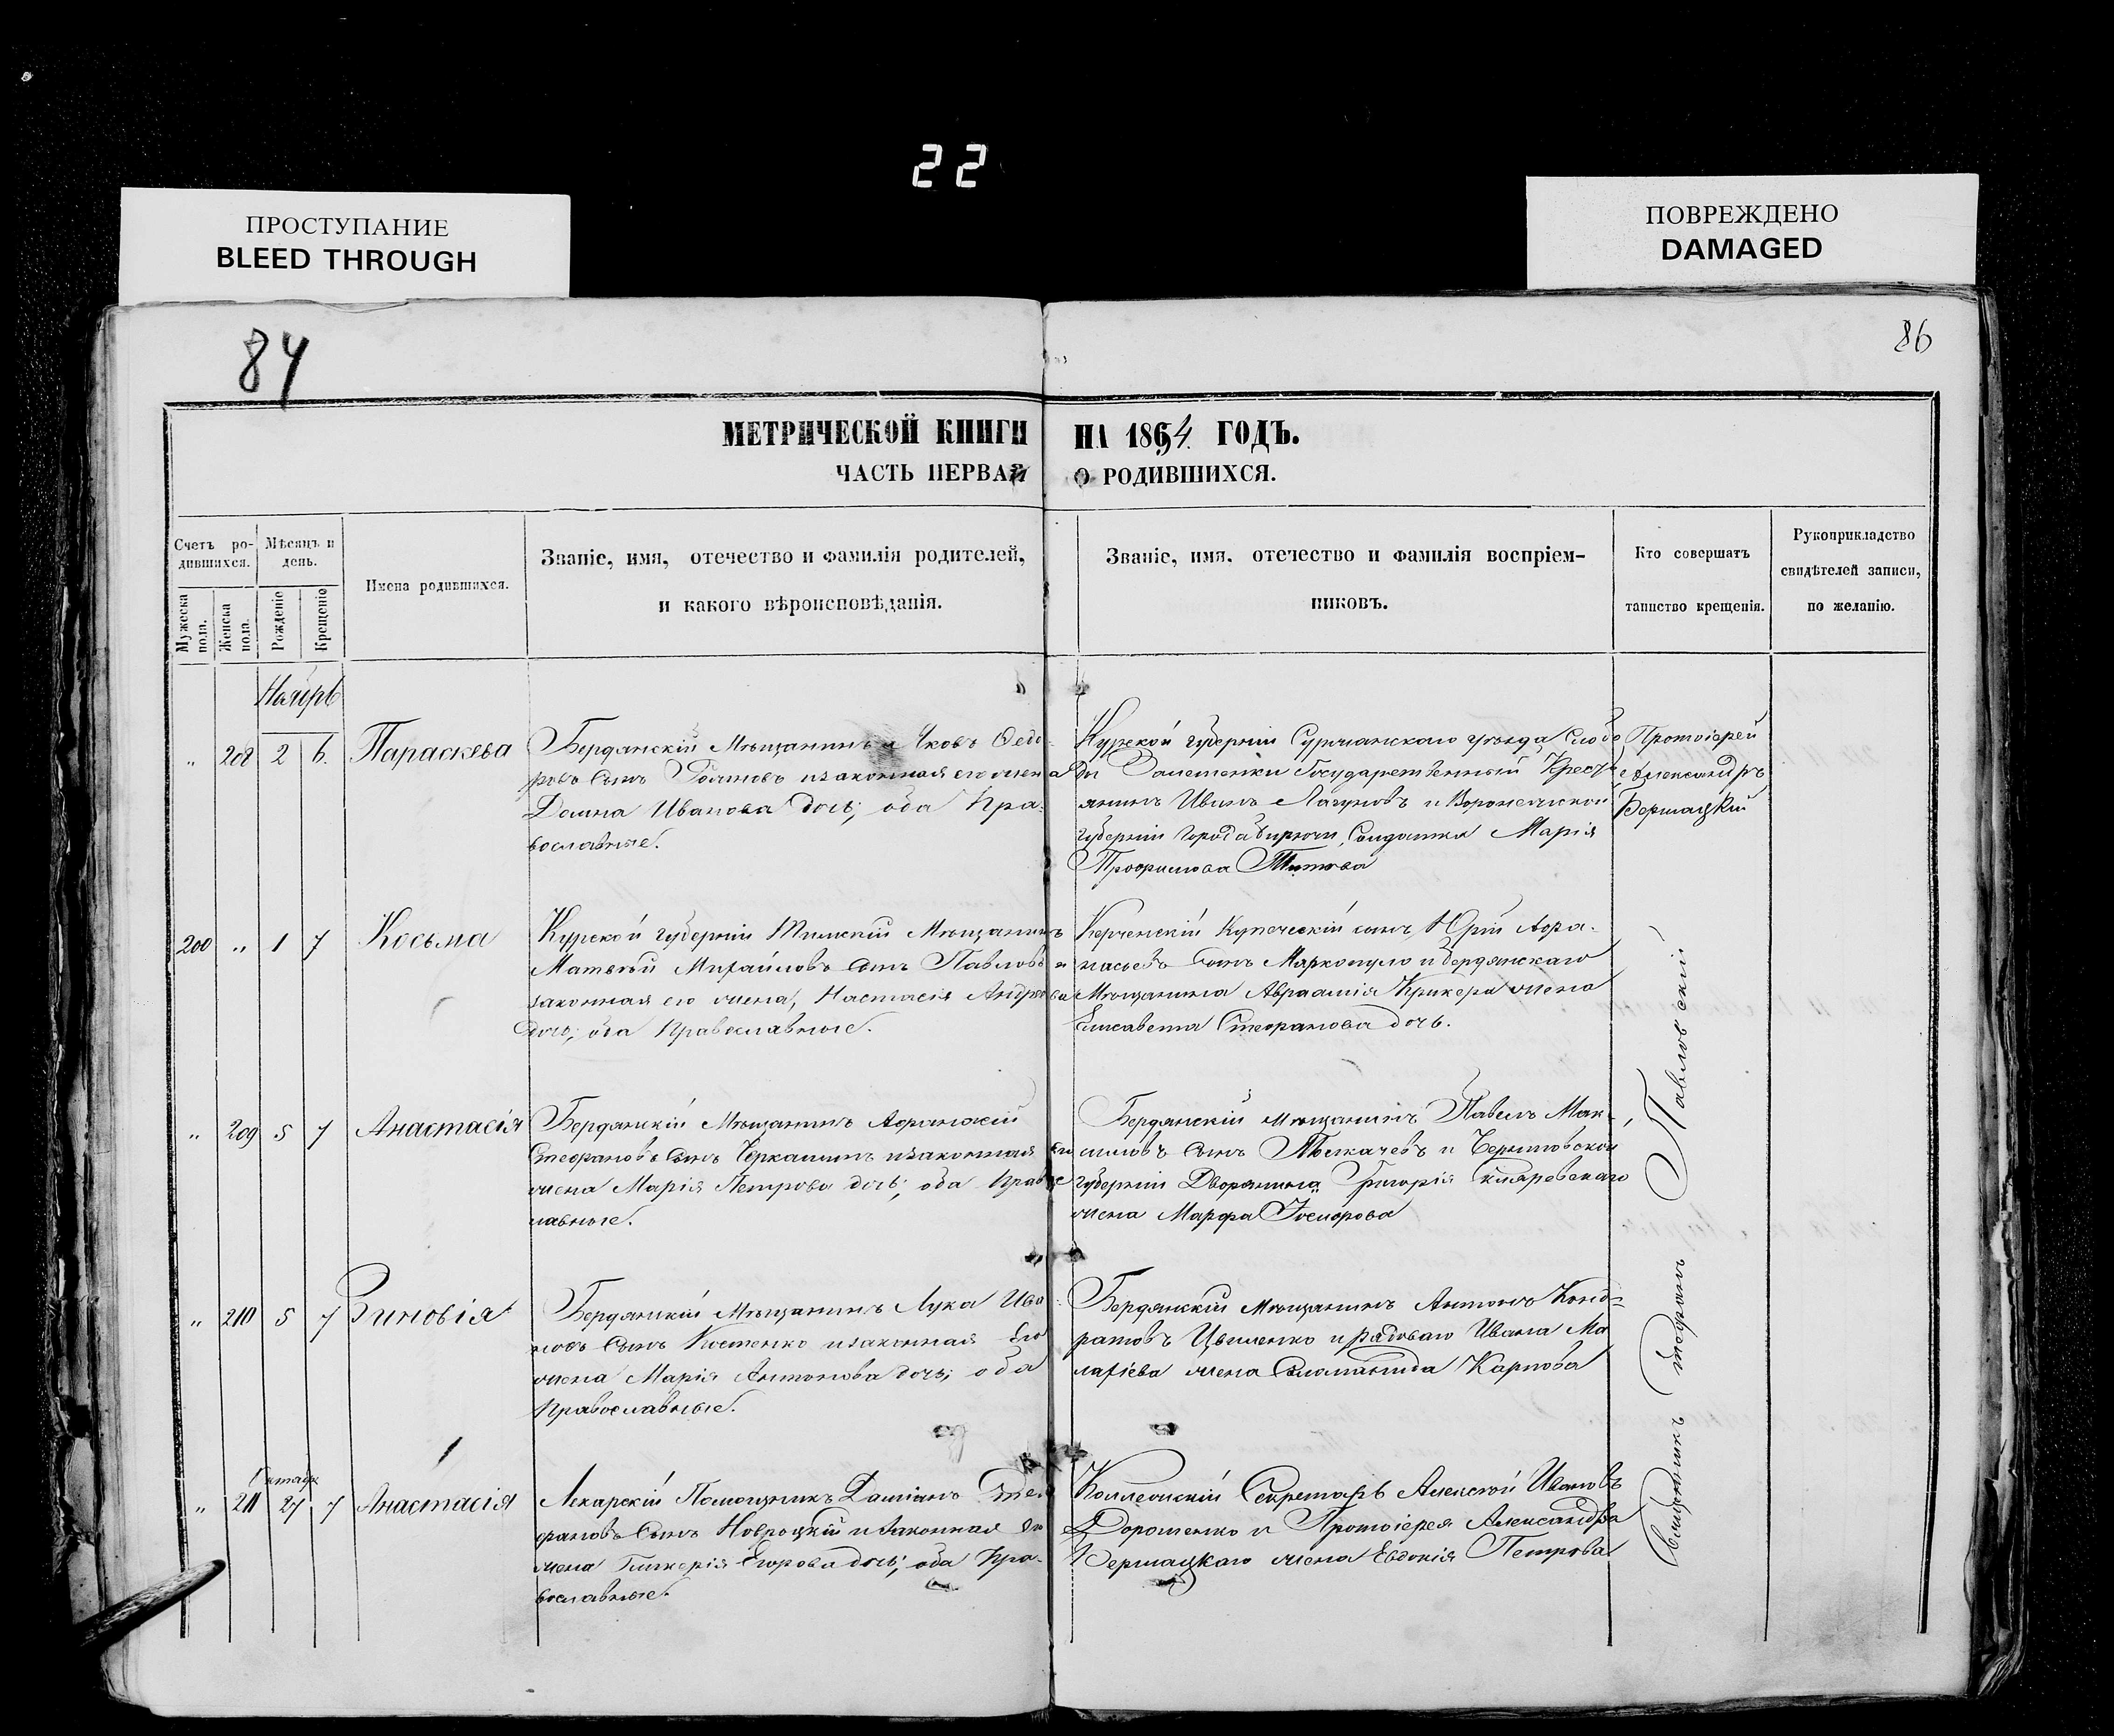 22
ПРОСТУПАНИЕ
BLEED THROUGH
ПОВРЕЖДЕНО
DAMAGED
84
86
МЕТРИЧЕСКОЙ КНИГИ НА 1864 ГОДЪ.
ЧАСТЬ ПЕРВАЯ О РОДИВШИХСЯ.
Счетъ ро-
дившихся.
Мужеска
пола.
Женска
пола.
Мѣсяцъ и
день.
Рожденіе
Крещеніе
Имена родившихся.
Званіе, имя, отечество и фамилія родителей,
и какого вѣроисповѣданія.
Званіе, имя, отечество и фамилія воспріем-
никовъ.
Кто совершатъ
таинство крещенія.
Рукоприкладство
свидѣтелей записи,
по желанію.
Ноябрь
" 208 2 6. Параскева
Бердянскій Мѣщанинъ Яковъ Ѳедо-
ровъ сынъ и законная его жена
Домна Иванова дочь; оба Пра-
вославные.
Курской губерніи уѣзда Слобо
ды Государственный Кресть
янинъ Иванъ и Воронежской
губерніи города Бирючи, Солдатка Марія
Трофимова Титова
Протоіерей
Александръ
Бершацкій
200 " 1 7 Косьма
Курской губерніи Тимскій Мѣщанинъ
Матвѣй Михайловъ сынъ Павловъ и
законная его жена, Настасія Андреева
дочь; оба Православные.
Керченскій Купеческій сынъ Юрій Афа-
насьевъ сынъ Маркопуло и Бердянскаго
Мѣщанина Авраамія Крикера жена
Елисавета Стефанова дочь.
" 209 5 7 Анастасія
Бердянскій Мѣщанинъ Афанасій
Стефановъ сынъ и законная его
жена Марія Петрова дочь; оба Правос
лавные.
Бердянскій мѣщанинъ Павелъ Мак-
симовъ сынъ Толкачевъ и Черниговской
губерніи Дворянина Григорія
жена Марфа
" 210 5 7 Зиновія
Бердянскій Мѣщанинъ Лука Ива-
новъ сынъ Костенко и законная его
жена Марія Антонова дочь; оба
Православные.
Бердянскій мѣщанинъ Антонъ Конд-
ратовъ и рядоваго Ивана Ма
лахіева жена Соломанида Карпова
Октябр
" 211 27 7 Анастасія
Лекарскій Помощникъ Даміанъ Сте-
фановъ сынъ Новроцкій и законная его
жена Гликерія Егорова дочь; оба Пра-
вославные.
Коллежскій Секретарь Алексѣй Ивановъ
Дорошенко и Протоіерея Александра
Бершацкаго жена Евдокія Петрова
Священникъ Стефанъ Павловскій